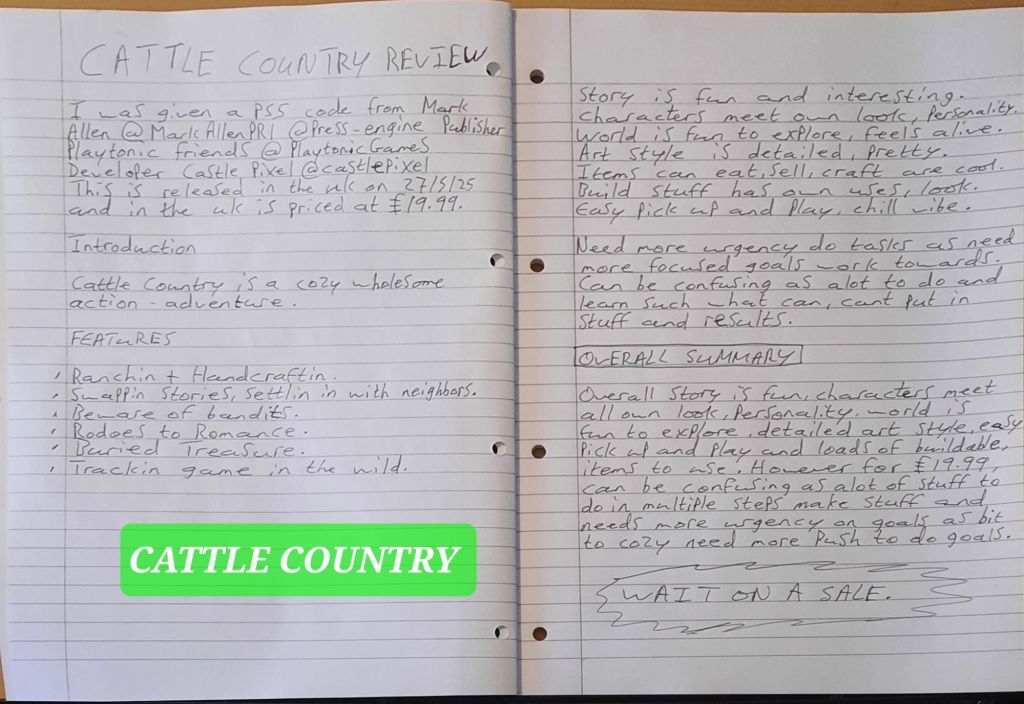 CATTLE COUNTRY REVIEW
I was given a PS5 code from Mark
Allen @MarkAllenPR1 @Press-engine Publisher
Playtonic friends @PlaytonicGames
Developer Castle Pixel @castlepixel
This is released in the uk on 27/5/25
and in the uk is priced at £19.99.
Introduction
Cattle Country is a cozy wholesome
action-adventure.
FEATURES
Ranchin + Handcraftin.
Swappin Stories, settlin in with neighbors.
Beware of bandits.
Rodoes to Romance.
Buried Treasure.
Trackin game in the wild.
CATTLE COUNTRY
Story is fun and interesting.
Characters meet own look, Personality.
World is fun to explore, feels alive.
Art style is detailed, pretty.
Items can eat, sell, craft are cool.
Build stuff has own uses, look.
Easy Pick up and Play, chill vibe.
Need more urgency do tasks as need
more focused goals work towards.
Can be confusing as alot to do and
learn such what can, cant put in
stuff and results.
OVERALL SUMMARY
Overall Story is fun, characters meet
all own look, Personality, world is
fun to explore, detailed art style, easy
Pick up and Play and loads of buildable,
items to use. However for £19.99,
can be confusing as alot of stuff to
do in multiple steps make stuff and
needs more urgency on goals as bit
to cozy need more Push to do goals.
WAIT ON A SALE.